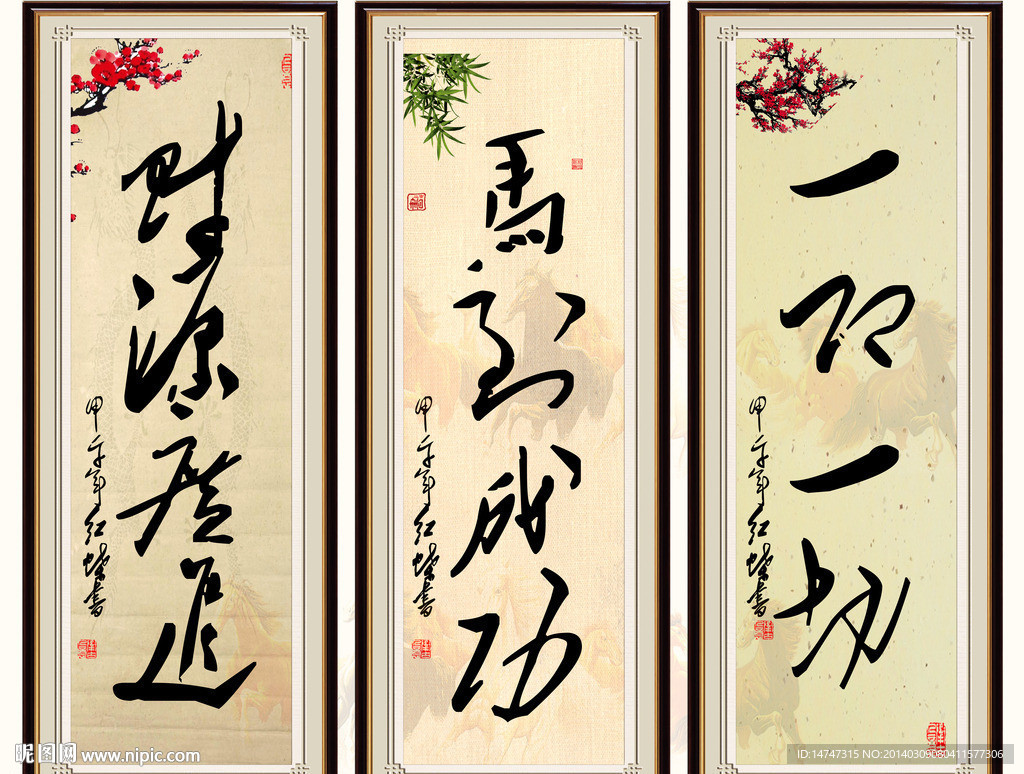 財源廣進
甲午年红蝶書
馬到成功
甲午年红蝶書
一即一切
甲午年红蝶書
昵图网 www.nipic.com
ID:14747315 NO:20140309080411577306